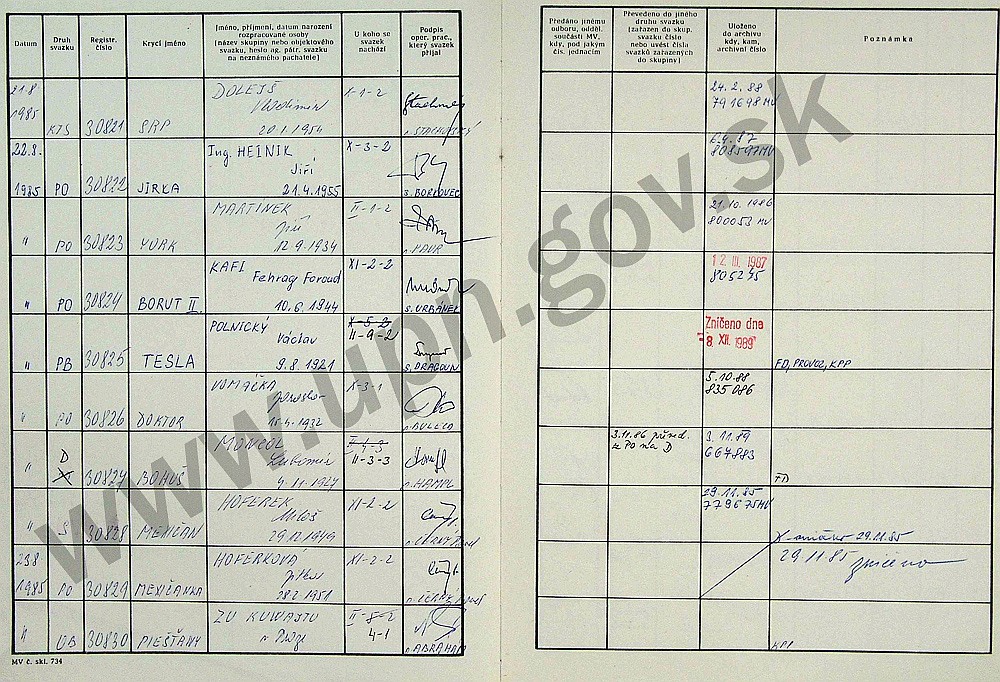 Datum
Druh svazku
Registr. číslo
Krycí jméno
Jméno, příjmení, datum narození
rozpracované osoby
(název skupiny nebo objektového
svazku, heslo ag. pátr. svazku
na neznámého pachatele)
U koho se
svazek
nachází
Podpis
oper. prac.,
který svazek
přijal
Předáno jinému
odboru, odděl.
součásti MV,
kdy, pod jakým
čís. jednacím
Převedeno do jiného
druhu svazku
(zařazen do skup.
svazku číslo
nebo uvést čísla
svazků zařazených
do skupiny)
Uloženo
do archivu
kdy, kam,
archivní číslo
Poznámka
21.8.
1985 KTS 30821 SRP
DOLEJŠ
Vladimír
20.1.1954
1-1-2
24.2.88
791698 MV
22.8.
1985 PO 30822 JÍRKA
Ing. HEINIK
Jiří
21.4.1955
X-3-2
s. BORKOVEC
808597 MV
" PO 30823 YORK
MARTINEK
Jiří
12.9.1934
II-1-2
21.10.1986
800053 MV
" PO 30824 BORUT II.
KAFI
Fehrag Foroud
10.6.1944
XI-2-2
s. URBÁNEK
12. III. 1987
805245
" PB 30825 TESLA
POLNICKÝ
Václav
9.8.1921
X-5-2
II-9-2
s. DRAGOUN
Zničeno dne
- 8. XII. 1989
FD, PROVOZ, KPP
" PO 30826 DOKTOR
VOMÁČKA
Jaroslav
15.4.1932
X-3-1
5.10.88
835086
" D 30827 BOHUŠ
Lubomír
9.11.1927
II-3-3
s. HAMPL
3.11.86 převed.
z PO na D
3.11.89
667883
FD
" S 30828 MEXIČAN
HOFEREK
Miloš
29.12.1949
XI-2-2
29.11.85
779675 MV
29.11.85
23.8.
1985 PO 30829 MEXIČANKA
HOFERKOVÁ
Jitka
28.2.1951
XI-2-2
29.11.85 zničeno
" UB 30830 PIEŠŤANY
ZÚ KUWAJTU
v Praze
II-5-2
4-1
s. ABRAHÁM
KPP
MV č. skl. 734
www.upn.gov.sk